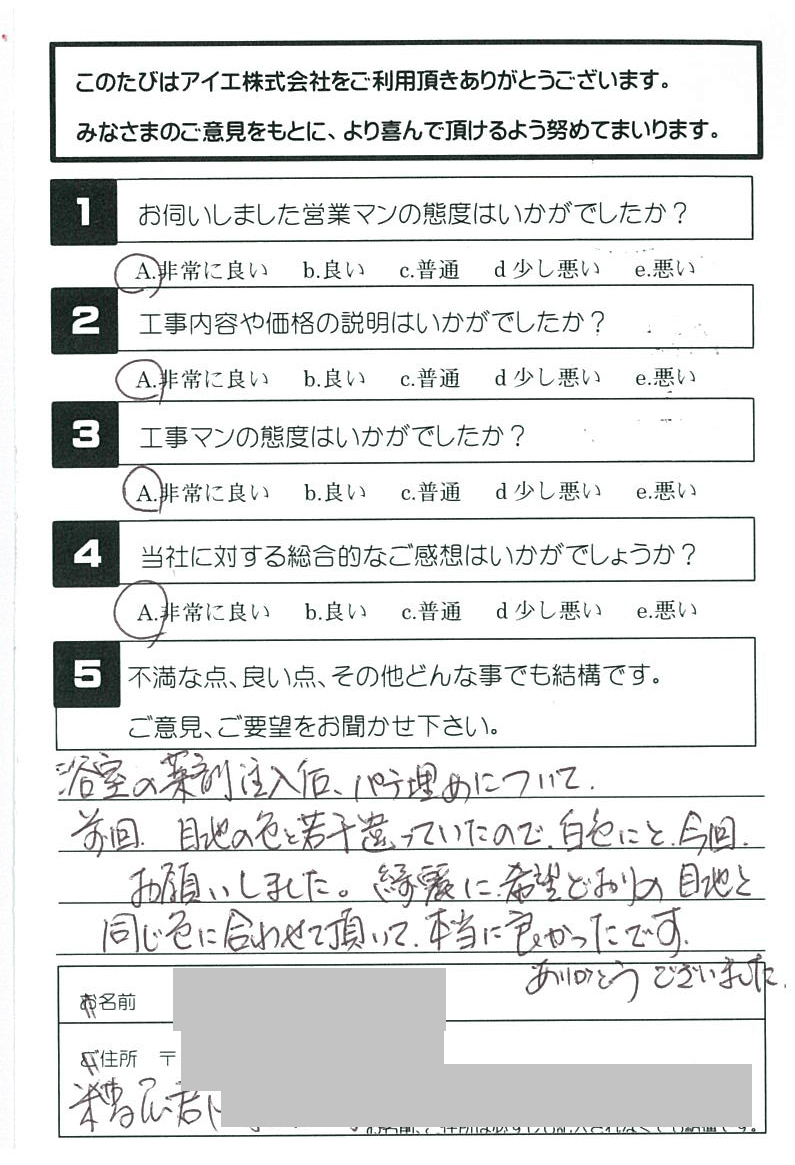 このたびはアイエ株式会社をご利用頂きありがとうございます。
みなさまのご意見をもとに、より喜んで頂けるよう努めてまいります。
1 お伺いしました営業マンの態度はいかがでしたか？
A.非常に良い b.良い c.普通 d 少し悪い e.悪い
2 工事内容や価格の説明はいかがでしたか？
A.非常に良い b.良い c.普通 d 少し悪い e.悪い
3 工事マンの態度はいかがでしたか？
A.非常に良い b.良い c.普通 d 少し悪い e.悪い
4 当社に対する総合的なご感想はいかがでしょうか？
A.非常に良い b.良い c.普通 d 少し悪い e.悪い
5 不満な点、良い点、その他どんな事でも結構です。
ご意見、ご要望をお聞かせ下さい。
浴室の薬剤注入后、パテ埋めについて.
前回. 目地の色と若干違っていたので.白色にと.今回.
お願いしました。綺麗に.希望どおりの目地と
同じ色に合わせて頂いて.本当に良かったです.
ありがとうございました.
お名前
ご住所 〒